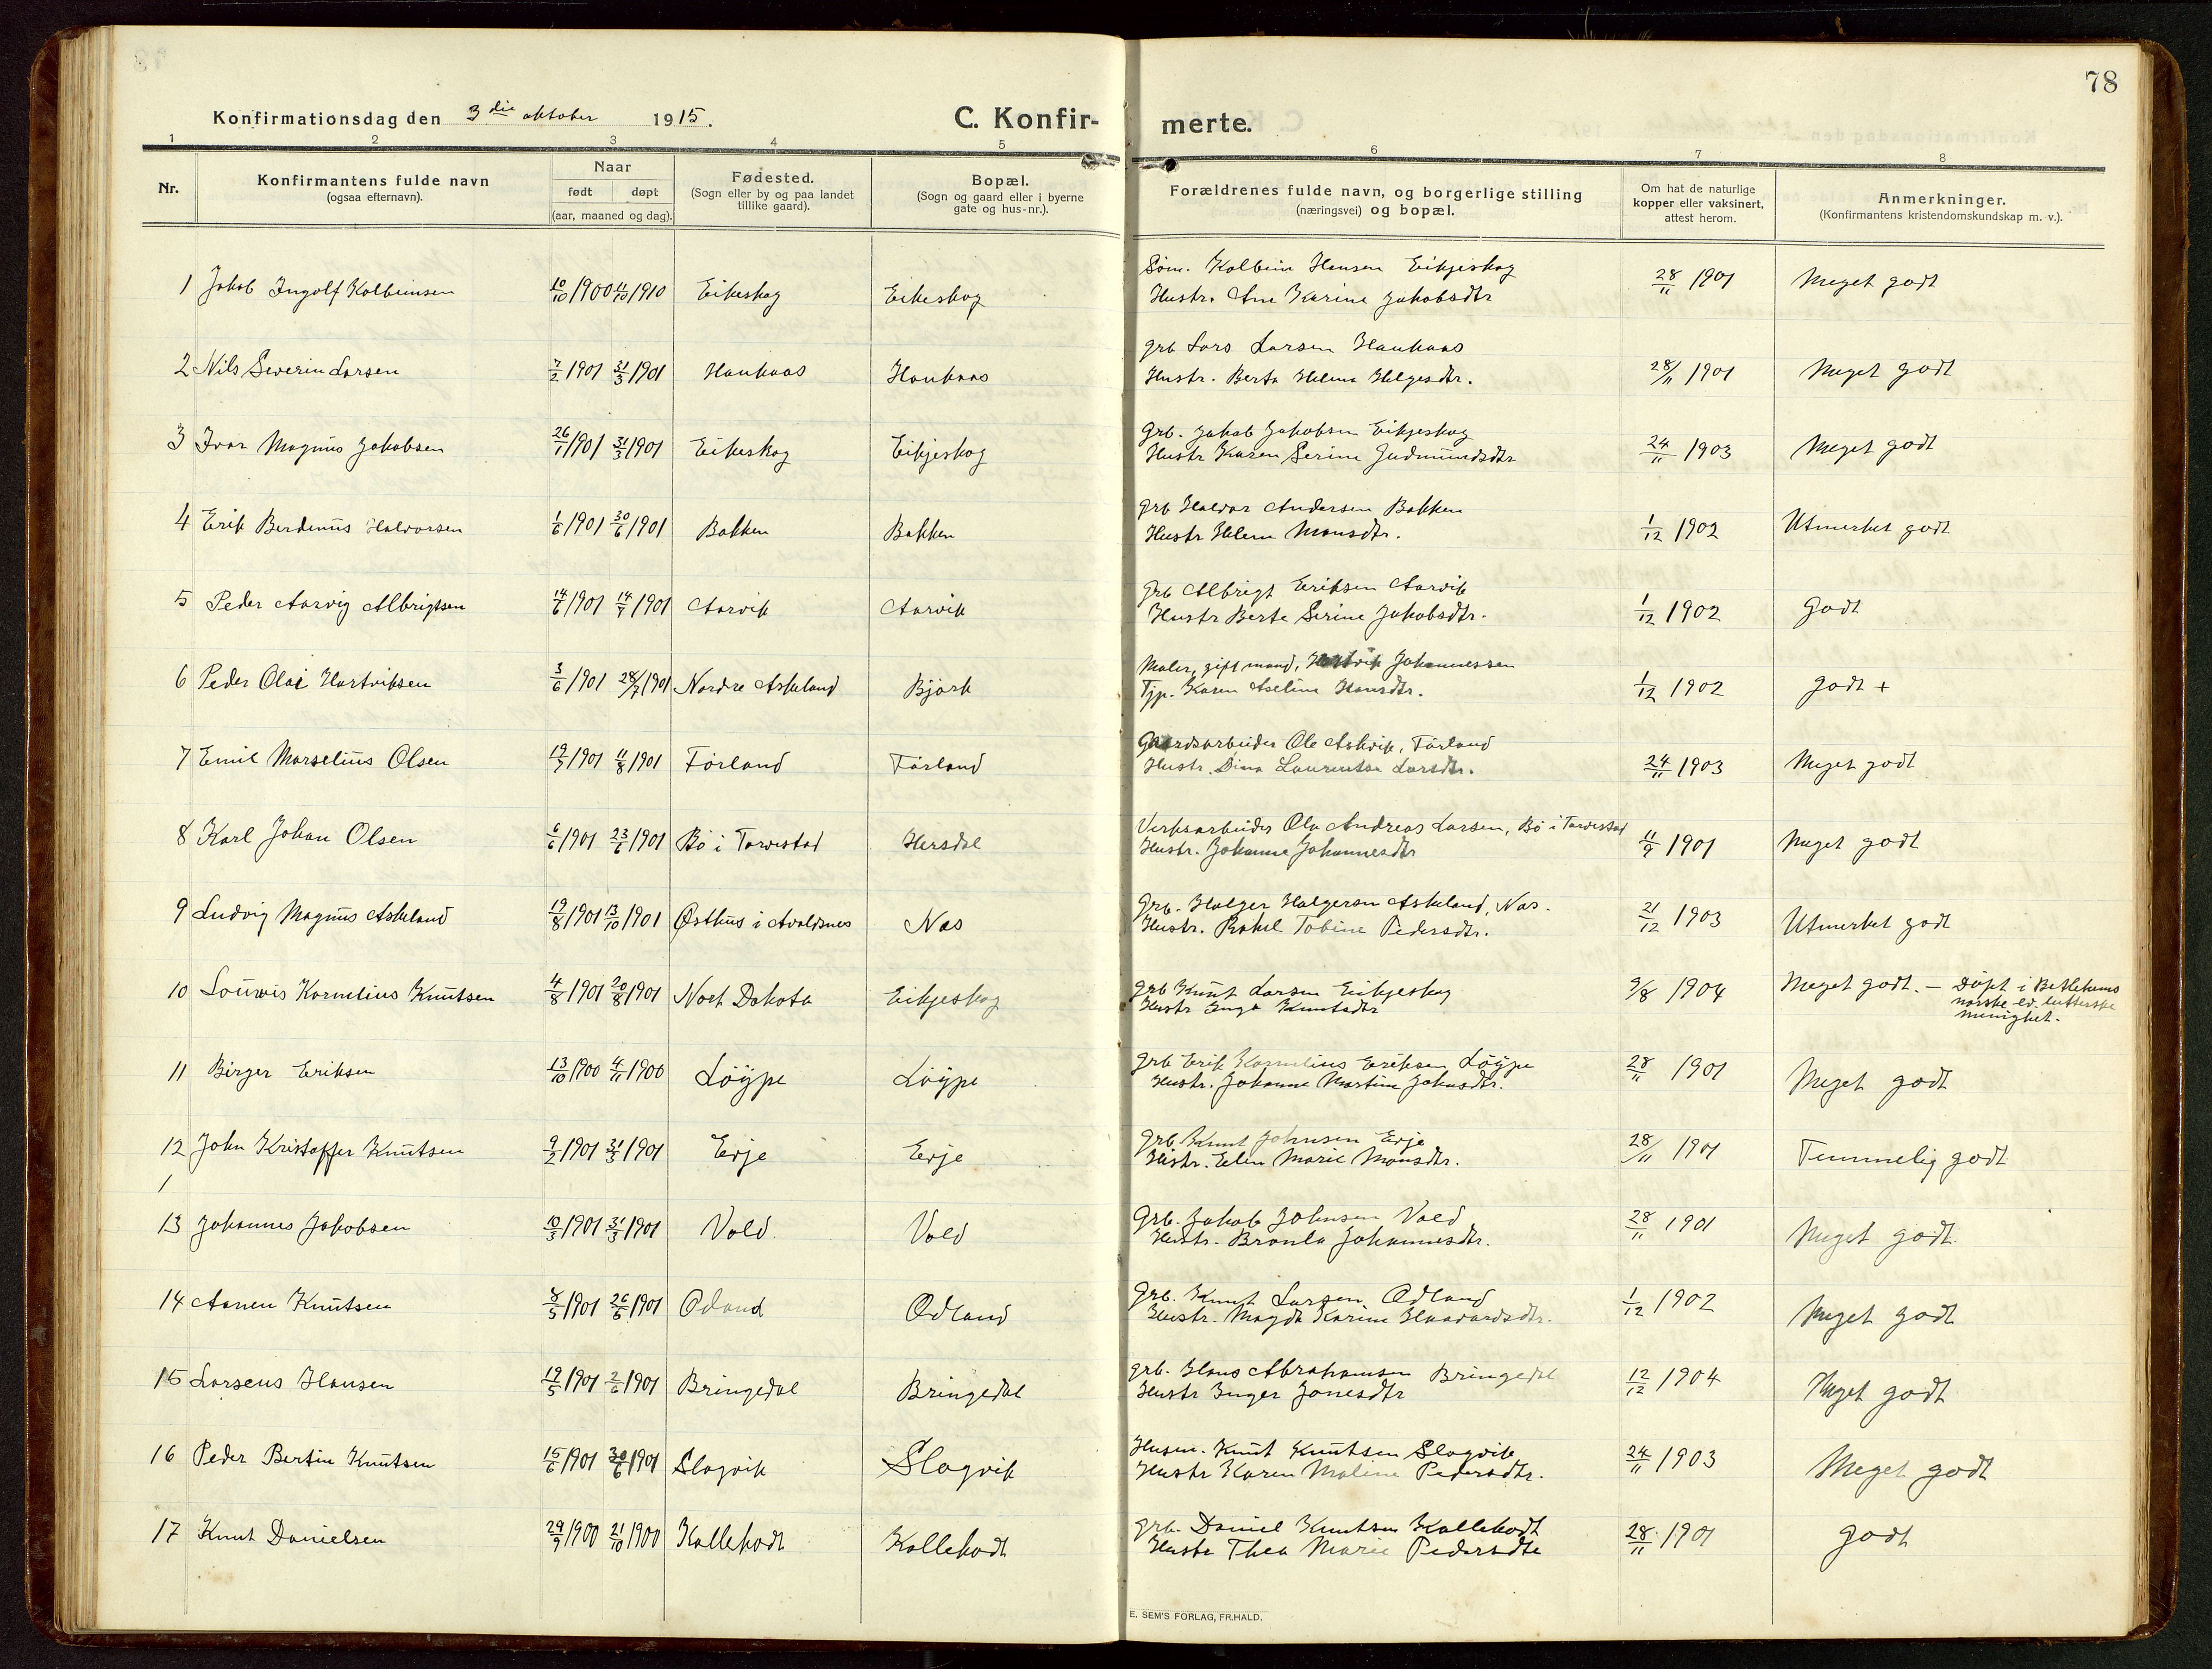 78
Konfirmationsdag den 3die oktober 1915.
C. Konfirmerte.
1 2 3 4 5 6 7 8
Nr.
Konfirmantens fulde navn
(ogsaa efternavn).
Naar
født døpt
(aar, maaned og dag).
Fødested.
(Sogn eller by og paa landet
tillike gaard).
Bopæl.
(Sogn og gaard eller i byerne
gate og hus-nr.).
Forældrenes fulde navn, og borgerlige stilling
(næringsvei) og bopæl.
Om hat de naturlige
kopper eller vaksinert,
attest herom.
Anmerkninger.
(Konfirmantens kristendomskundskap m. v.).
1 Jakob Ingolf Kolbeinsen 10/10 1900 11/10 1910 Eikeskog Eikeskog
Søm. Kolbein Hansen Eikjeskog
Hustr. Ane Karine Jakobsdtr
28/11 1901 Meget godt
2 Nils Severin Larsen 7/2 1901 31/3 1901 Haukaas Haukaas
grb Lars Larsen Haukaas
Hustr. Berta Helene Helgesdtr.
28/11 1901 Meget godt
3 Ivar Magnus Jakobsen 26/1 1901 31/3 1901 Eikeskog Eikjeskog
Grb. Jakob Jakobsen Eikjeskog
Hustr Karen Serine Gudmundsdtr
24/11 1903 Meget godt
4 Erik Berdinus Haldorsen 1/6 1901 30/6 1901 Bakken Bakken
grb Haldor Andersen Bakken
Hustr Helene Monsdtr.
1/12 1902 Utmerket godt
5 Peder Aarvig Albrigtsen 14/6 1901 14/7 1901 Aarvik Aarvik
Grb Albrigt Eriksen Aarvik
Hustr Berte Serine Jakobsdtr.
1/12 1902 Godt
6 Peder Olai Hartviksen 3/6 1901 28/7 1901 Nordre Askeland Bjørk
Maler, gift mand, Hartvik Johannessen
Tjp. Karen Aseline Hansdtr.
1/12 1902 Godt +
7 Emil Marselius Olsen 19/7 1901 11/8 1901 Førland Førland
Gaardsarbeider Ole Askvik, Førland
Hustr. Dina Laurentse Larsdtr.
24/11 1903 Meget godt
8 Karl Johan Olsen 6/6 1901 23/6 1901 Bø i Torvestad Hersdal
Verksarbeider Ola Andreas Larsen, Bø i Torvestad
Hustr. Johanne Johannesdtr
11/9 1901 Meget godt
9 Ludvig Magnus Askeland 19/8 1901 13/10 1901 Østhus i Avaldsnes Nes
Grb. Holger Holgersen Askeland, Nes.
Hustr. Rakel Tobine Pedersdtr.
21/12 1903 Utmerket godt
10 Louwis Kornelius Knutsen 4/8 1901 20/8 1901 Noet Dakota Eikjeskog
grb Knut Larsen Eikjeskog
Hustr Inga Knutsdtr
9/8 1904 Meget godt. – Døpt i Betlehems
norske ev. lutterske
menighet.
11 Birger Eriksen 13/10 1900 4/11 1900 Løype Løype
grb Erik Kornelius Eriksen Løype
Hustr. Johanne Martine Johnsdtr.
28/11 1901 Meget godt
12 John Kristoffer Knutsen 9/2 1901 31/3 1901 Erje Erje
grb. Knut Johnsen Erje
Hustr. Elen Marie Monsdtr.
28/11 1901 Temmelig godt
13 Johannes Jakobsen 10/3 1901 31/3 1901 Vold Vold
Grb. Jakob Johnsen Vold
Hustr. Bronla Johannesdtr.
28/11 1901 Meget godt
14 Aanen Knutsen 8/5 1901 26/5 1901 Odland Odland
Grb. Knut Larsen Odland
Hustr. Magda Karine Haavardsdtr.
1/12 1902 Meget godt
15 Larsens Hansen 19/5 1901 2/6 1901 Bringedal Bringedal
grb. Hans Abrahamsen Bringedal
Hustr Inger Jonesdtr
12/12 1904 Meget godt
16 Peder Bertin Knutsen 15/6 1901 30/6 1901 Slogvik Slogvik
Husm. Knut Knutsen Slogvik
Hustr Karen Maline Pedersdtr.
24/11 1903 Meget godt
17 Knut Danielsen 29/9 1900 21/10 1900 Kallekodt Kallekodt
grb. Daniel Knutsen Kallekodt
Hustr Thea Marie Pedersdtr
28/11 1901 Godt
E. SEM'S FORLAG, FR.HALD.